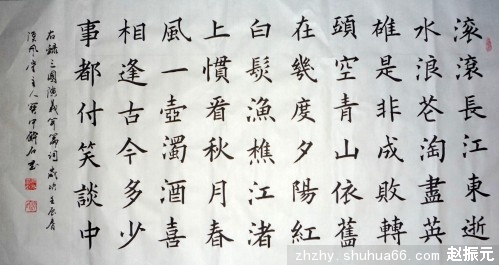 滚滚長江東逝
水浪花淘盡英
雄是非成敗轉
頭空青山依舊
在幾度夕陽紅
白髮漁樵江渚
上慣看秋月春
風一壺濁酒喜
相逢古今多少
事都付笑談中
右錄三國演義開篇詞歲次壬辰春
zhzhy.shuhua66.com 赵振元